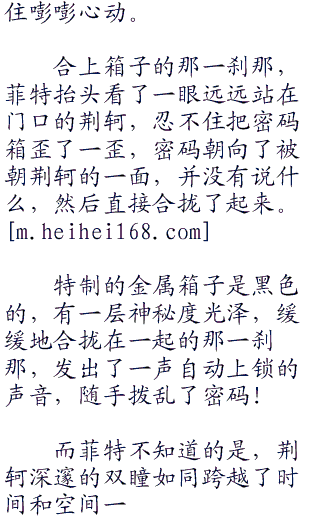 住嘭嘭心动。
合上箱子的那一刹那，
菲特抬头看了一眼远远站在
门口的荆轲，忍不住把密码
箱歪了一歪，密码朝向了被
朝荆轲的一面，并没有说什
么，然后直接合拢了起来。
[m.heihei168.com]
特制的金属箱子是黑色
的，有一层神秘度光泽，缓
缓地合拢在一起的那一刹
那，发出了一声自动上锁的
声音，随手拨乱了密码！
而菲特不知道的是，荆
轲深邃的双瞳如同跨越了时
间和空间一